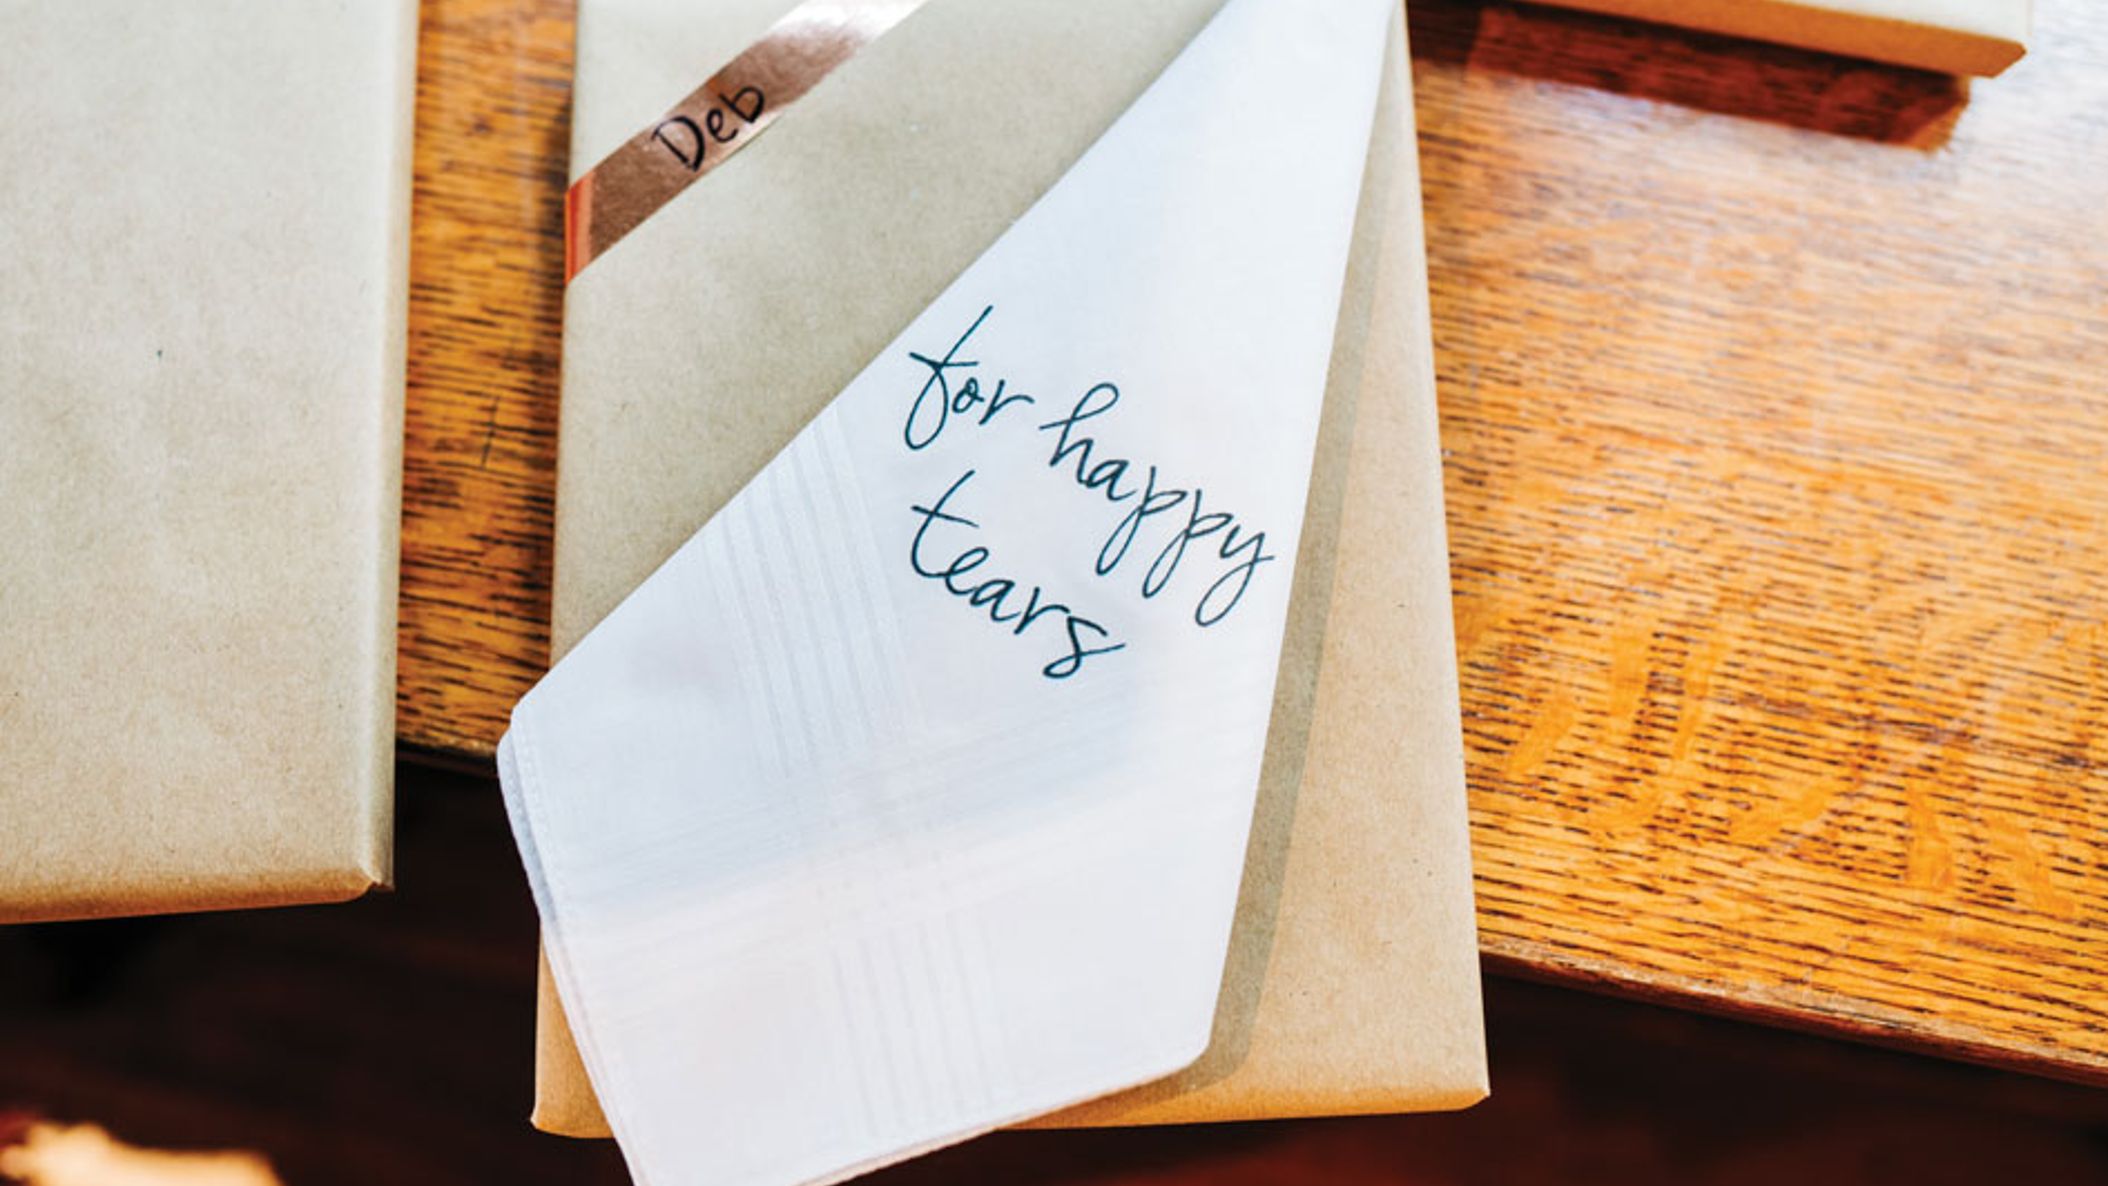 Deb
for happy
tears